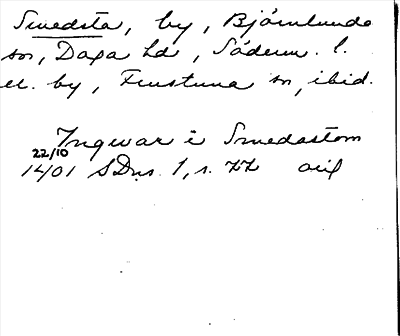 Smedsta, by, Björnlunda
sn, Daga hd, Söderm. l.
el. by, Frustuna sn, ibid.
Ingwar i Smedastom
22/10
1401 SDns. 1, s. 77 orig